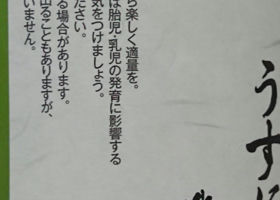 うす
ら楽しく適量を。
は胎児・乳児の発育に影響する
気をつけましょう。
ださい。
る場合があります。
出ることもありますが、
いません。